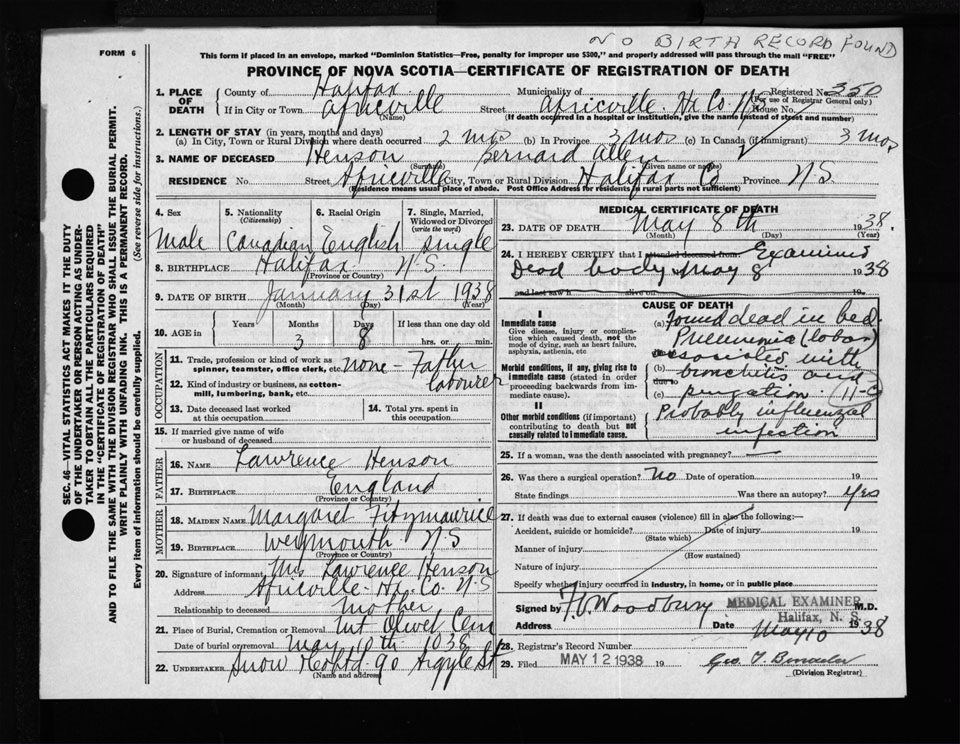 NO BIRTH RECORD FOUND
FORM 6
This form if placed in an envelope, marked "Dominion Statistics—Free, penalty for improper use $300," and properly addressed will pass through the mail "FREE"
PROVINCE OF NOVA SCOTIA—CERTIFICATE OF REGISTRATION OF DEATH
SEC. 46—VITAL STATISTICS ACT MAKES IT THE DUTY
OF THE UNDERTAKER OR PERSON ACTING AS UNDER-
TAKER TO OBTAIN ALL THE PARTICULARS REQUIRED
IN THE "CERTIFICATE OF REGISTRATION OF DEATH"
AND TO FILE THE SAME WITH THE DIVISION REGISTRAR WHO SHALL ISSUE THE BURIAL PERMIT.
WRITE PLAINLY WITH UNFADING INK. THIS IS A PERMANENT RECORD.
Every item of information should be carefully supplied. (See reverse side for instructions.)
1. PLACE OF DEATH
County of Halifax Municipality of Registered No. 350
(For use of Registrar General only)
If in City or Town Africville Street Africville. Hx Co. N.S. House No.
(Name) (If death occurred in a hospital or institution, give the name instead of street and number)
2. LENGTH OF STAY (in years, months and days)
(a) In City, Town or Rural Division where death occurred 2 mos (b) In Province 3 mos (c) In Canada (if immigrant) 3 mos
3. NAME OF DECEASED Henson Bernard Allen
(Surname) (Given name or names)
RESIDENCE No. Street Africville City, Town or Rural Division Halifax Co Province N.S.
(Residence means usual place of abode. Post Office Address for residents in rural parts not sufficient)
4. Sex Male
5. Nationality (Citizenship) Canadian
6. Racial Origin English
7. Single, Married, Widowed or Divorced (write the word) single
8. BIRTHPLACE Halifax N.S.
(Province or Country)
9. DATE OF BIRTH January 31st 1938
(Month) (Day) (Year)
10. AGE in Years Months 3 Days 8 If less than one day old hrs. or min.
OCCUPATION
11. Trade, profession or kind of work as spinner, teamster, office clerk, etc. none - Father labourer
12. Kind of industry or business, as cotton-mill, lumbering, bank, etc.
13. Date deceased last worked at this occupation
14. Total yrs. spent in this occupation
15. If married give name of wife or husband of deceased
FATHER
16. NAME Lawrence Henson
17. BIRTHPLACE England
(Province or Country)
MOTHER
18. MAIDEN NAME Margaret Fitzmaurice
19. BIRTHPLACE Weymouth N.S
(Province or Country)
20. Signature of informant Mrs Lawrence Henson
Address Africville - Hx. Co. N.S
Relationship to deceased Mother
21. Place of Burial, Cremation or Removal Mt Olivet Cem
Date of burial or removal May 10th 1938
22. UNDERTAKER Snow & Co Ltd. 90 Argyle St
(Name and address)
MEDICAL CERTIFICATE OF DEATH
23. DATE OF DEATH May 8th 1938.
(Month) (Day) (Year)
24. I HEREBY CERTIFY that I attended deceased from Examined
Dead body May 8 1938
and last saw h alive on 19
CAUSE OF DEATH
I
Immediate cause
Give disease, injury or complication which caused death, not the mode of dying, such as heart failure, asphyxia, asthenia, etc
Morbid conditions, if any, giving rise to immediate cause (stated in order proceeding backwards from immediate cause).
II
Other morbid conditions (if important) contributing to death but not causally related to immediate cause.
(a) Found dead in bed.
Pneumonia (lobar)
due to associated with
(b) bronchitis and
due to
(c) 11-C
Probably influenzal
infection
25. If a woman, was the death associated with pregnancy?
26. Was there a surgical operation? No Date of operation 19
State findings Was there an autopsy? Yes
27. If death was due to external causes (violence) fill in also the following:—
Accident, suicide or homicide? Date of injury 19
(State which)
Manner of injury
(How sustained)
Nature of injury
Specify whether injury occurred in industry, in home, or in public place
Signed by Woodbury MEDICAL EXAMINER M.D.
Halifax, N. S.
Address Date May 10 1938
28. Registrar's Record Number
29. Filed MAY 12 1938 19
(Division Registrar)